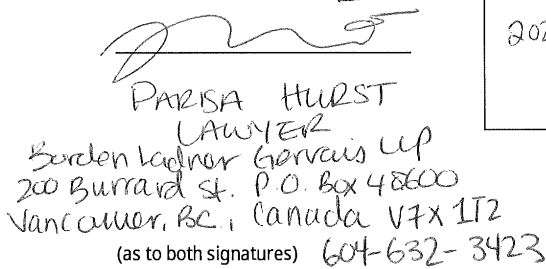 202
PARISA HURST
LAWYER
Borden Ladner Gervais LLP
200 Burrard St. P.O. Box 48600
Vancouver, BC, Canada V7X 1T2
(as to both signatures) 604-632-3423